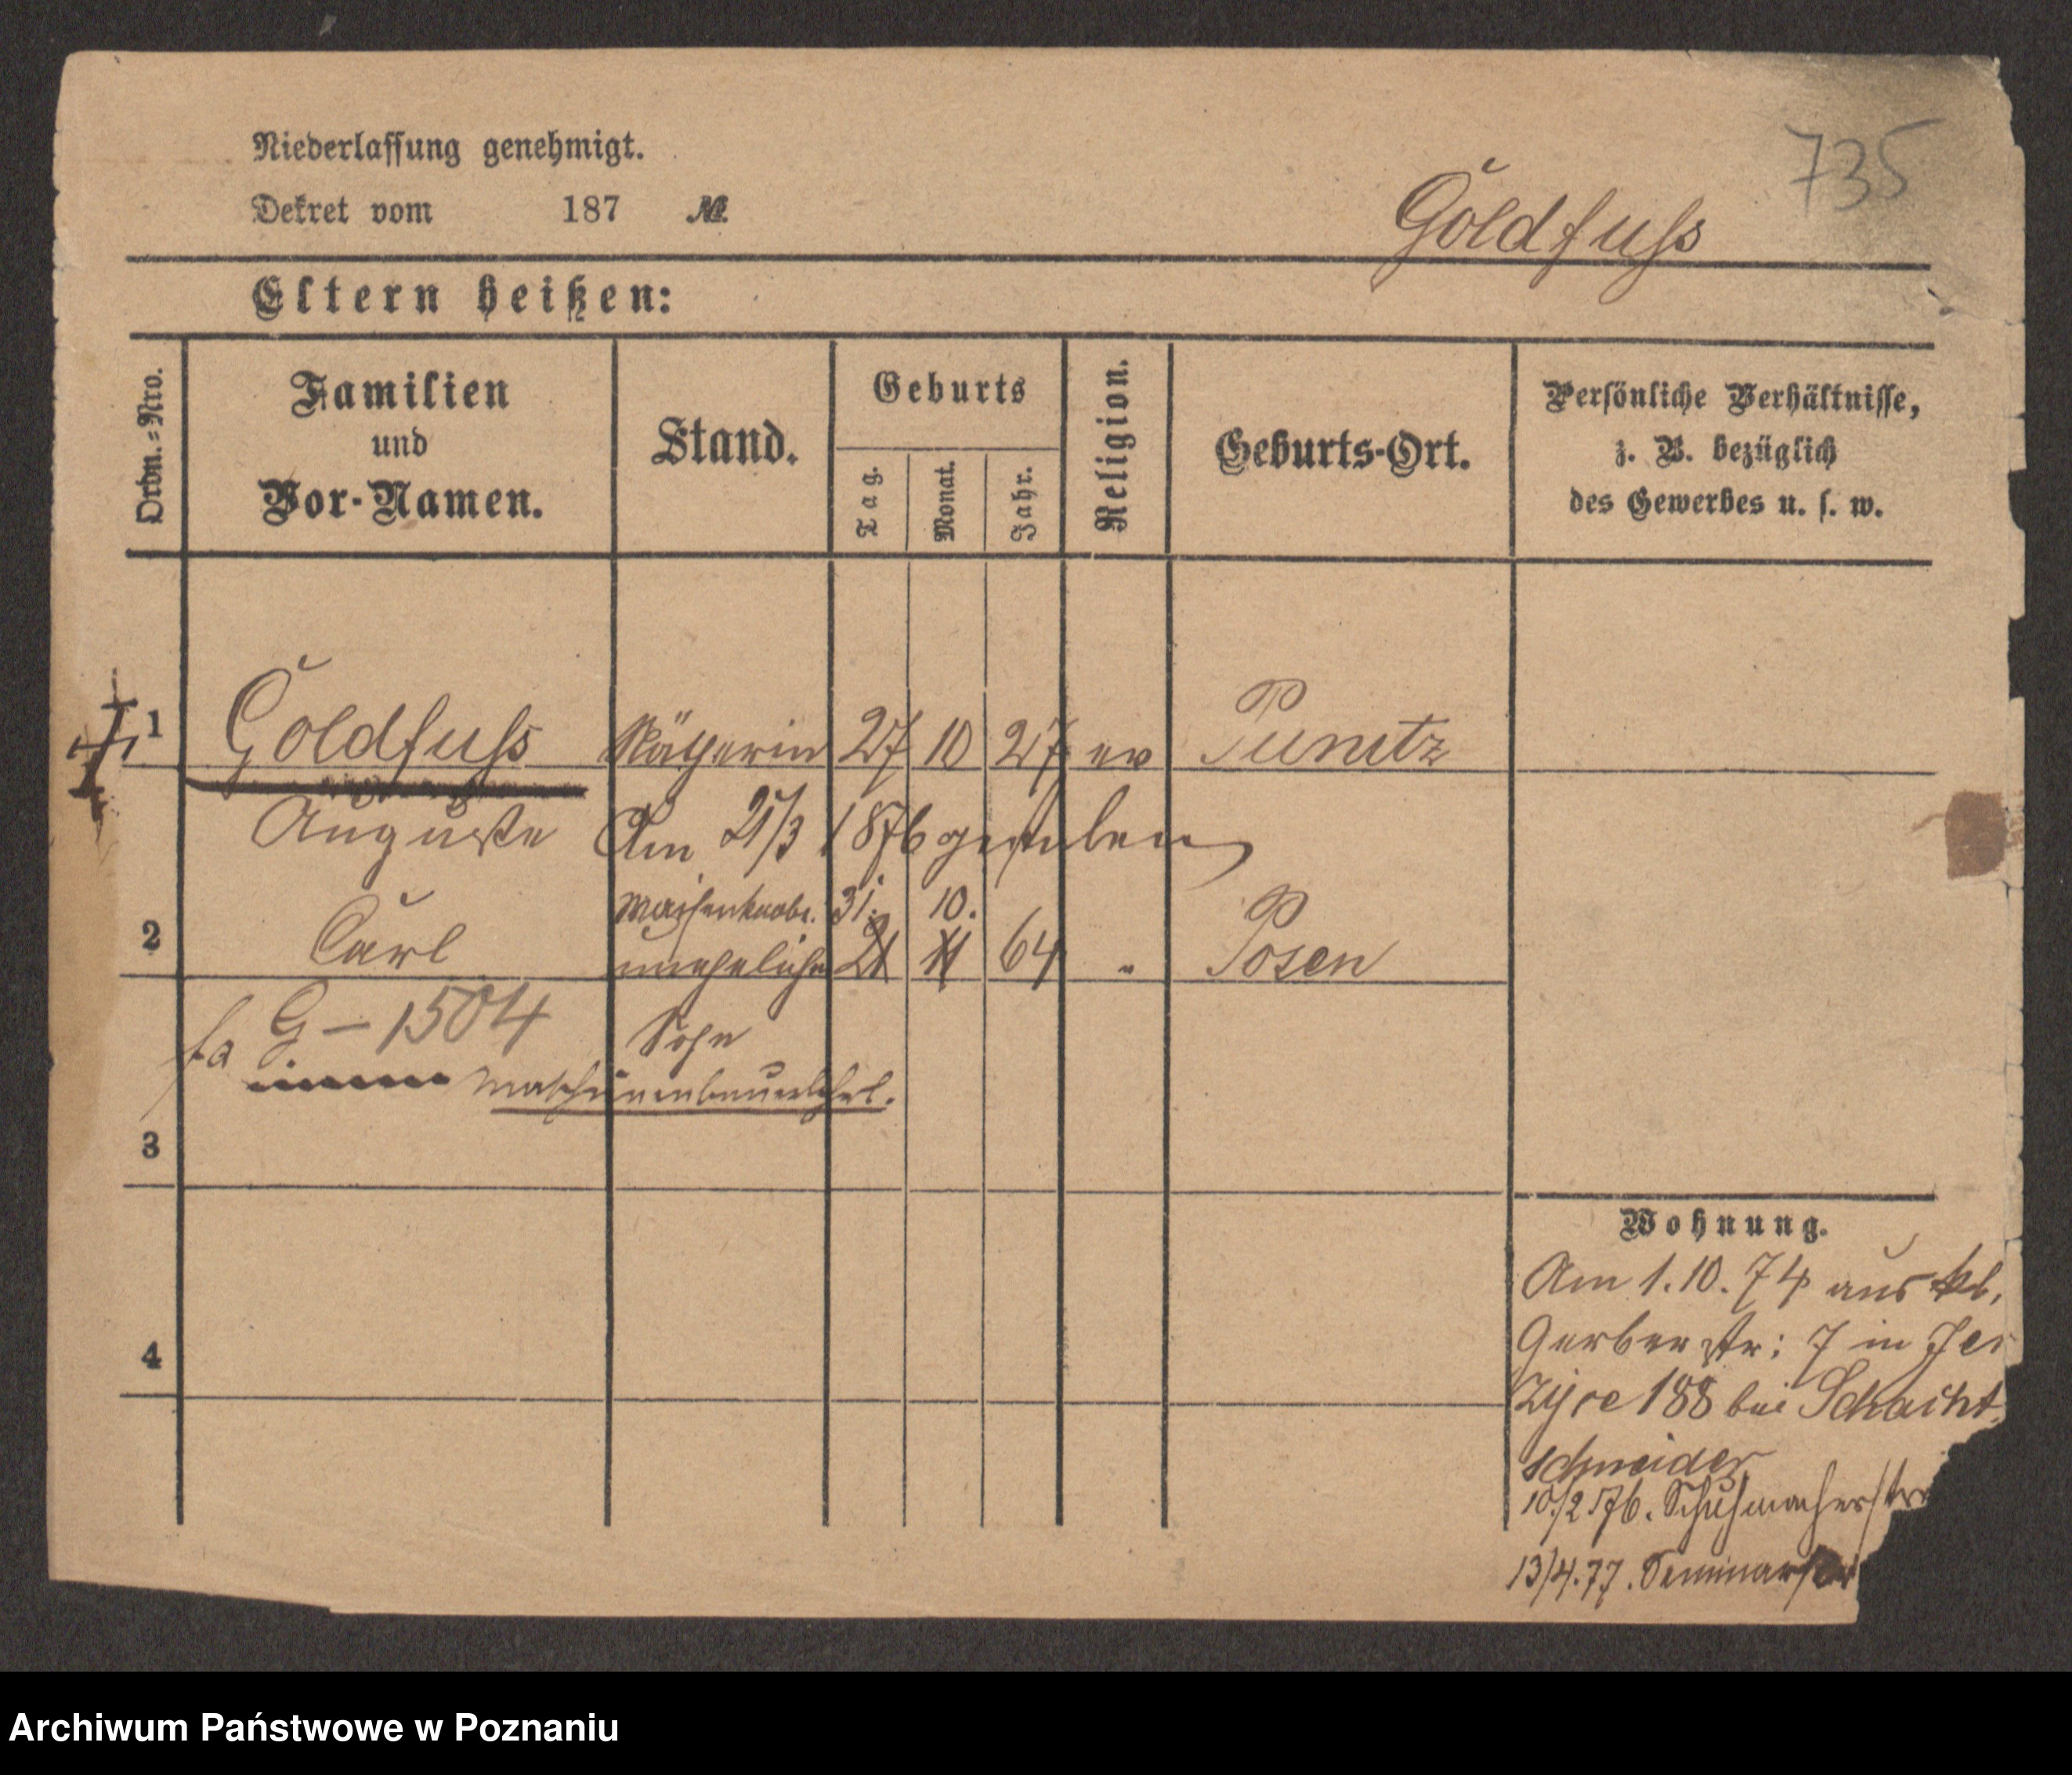 735
Niederlassung genehmigt.
Dekret vom 187 №
Goldfuss
Eltern heißen:
Ordn.=Nro.
Familien und Vor-Namen.
Stand.
Geburts
Tag.
Monat.
Jahr.
Religion.
Geburts-Ort.
Persönliche Verhältnisse,
z. B. bezüglich
des Gewerbes u. s. w.
1 Goldfuss Nätherin 27 10 27 ev Punitz
Auguste Am 21/3 1876 gestorben
Waisenknabe. 31. 10.
2 Carl uneheliche 21 11 64 " Posen
fa G - 1504 Sohn
Maschinenbauerlehrl.
3
4
Wohnung.
Am 1.10.74 aus kl.
Gerberstr: 7 in Jer
zyce 188 bei Schacht
schneider
10/2 76. Schuhmacherstr
13/4.77. Seminarstr
Archiwum Państwowe w Poznaniu